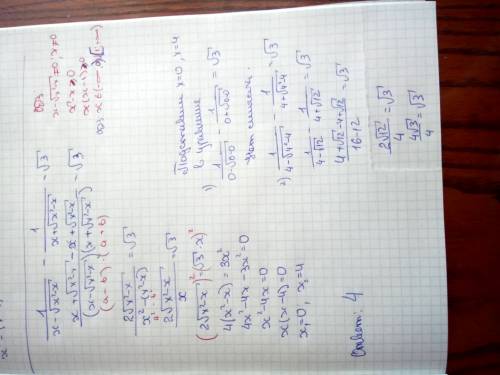 1/(x-√(x²-x)) - 1/(x+√(x²-x)) = √3
(x+√(x²-x) - x+√(x²-x))/((x-√(x²-x))(x+√(x²-x))) = √3
(a-b)·(a+b)
2√(x²-x)/(x²-(x²-x)) = √3
a² - b²
2√(x²-x)/x = √3
(2√(x²-x))² = (√3·x)²
4(x²-x) = 3x²
4x²-4x-3x²=0
x²-4x=0
x(x-4)=0
x₁=0, x₂=4
Ответ: 4
ОДЗ
x-√(x²-x)≠0; x≠0
x²-x≥0
x(x-1)≥0
Подставим x=0, x=4
в уравнение
1) 1/(0-√(0-0)) - 1/(0+√(0-0)) = √3
Нет смысла.
2) 1/(4-√(4²-4)) - 1/(4+√(4²-4)) = √3
1/(4-√12) - 1/(4+√12) = √3
(4+√12-4+√12)/(16-12) = √3
2√12/4 = √3
4√3/4 = √3